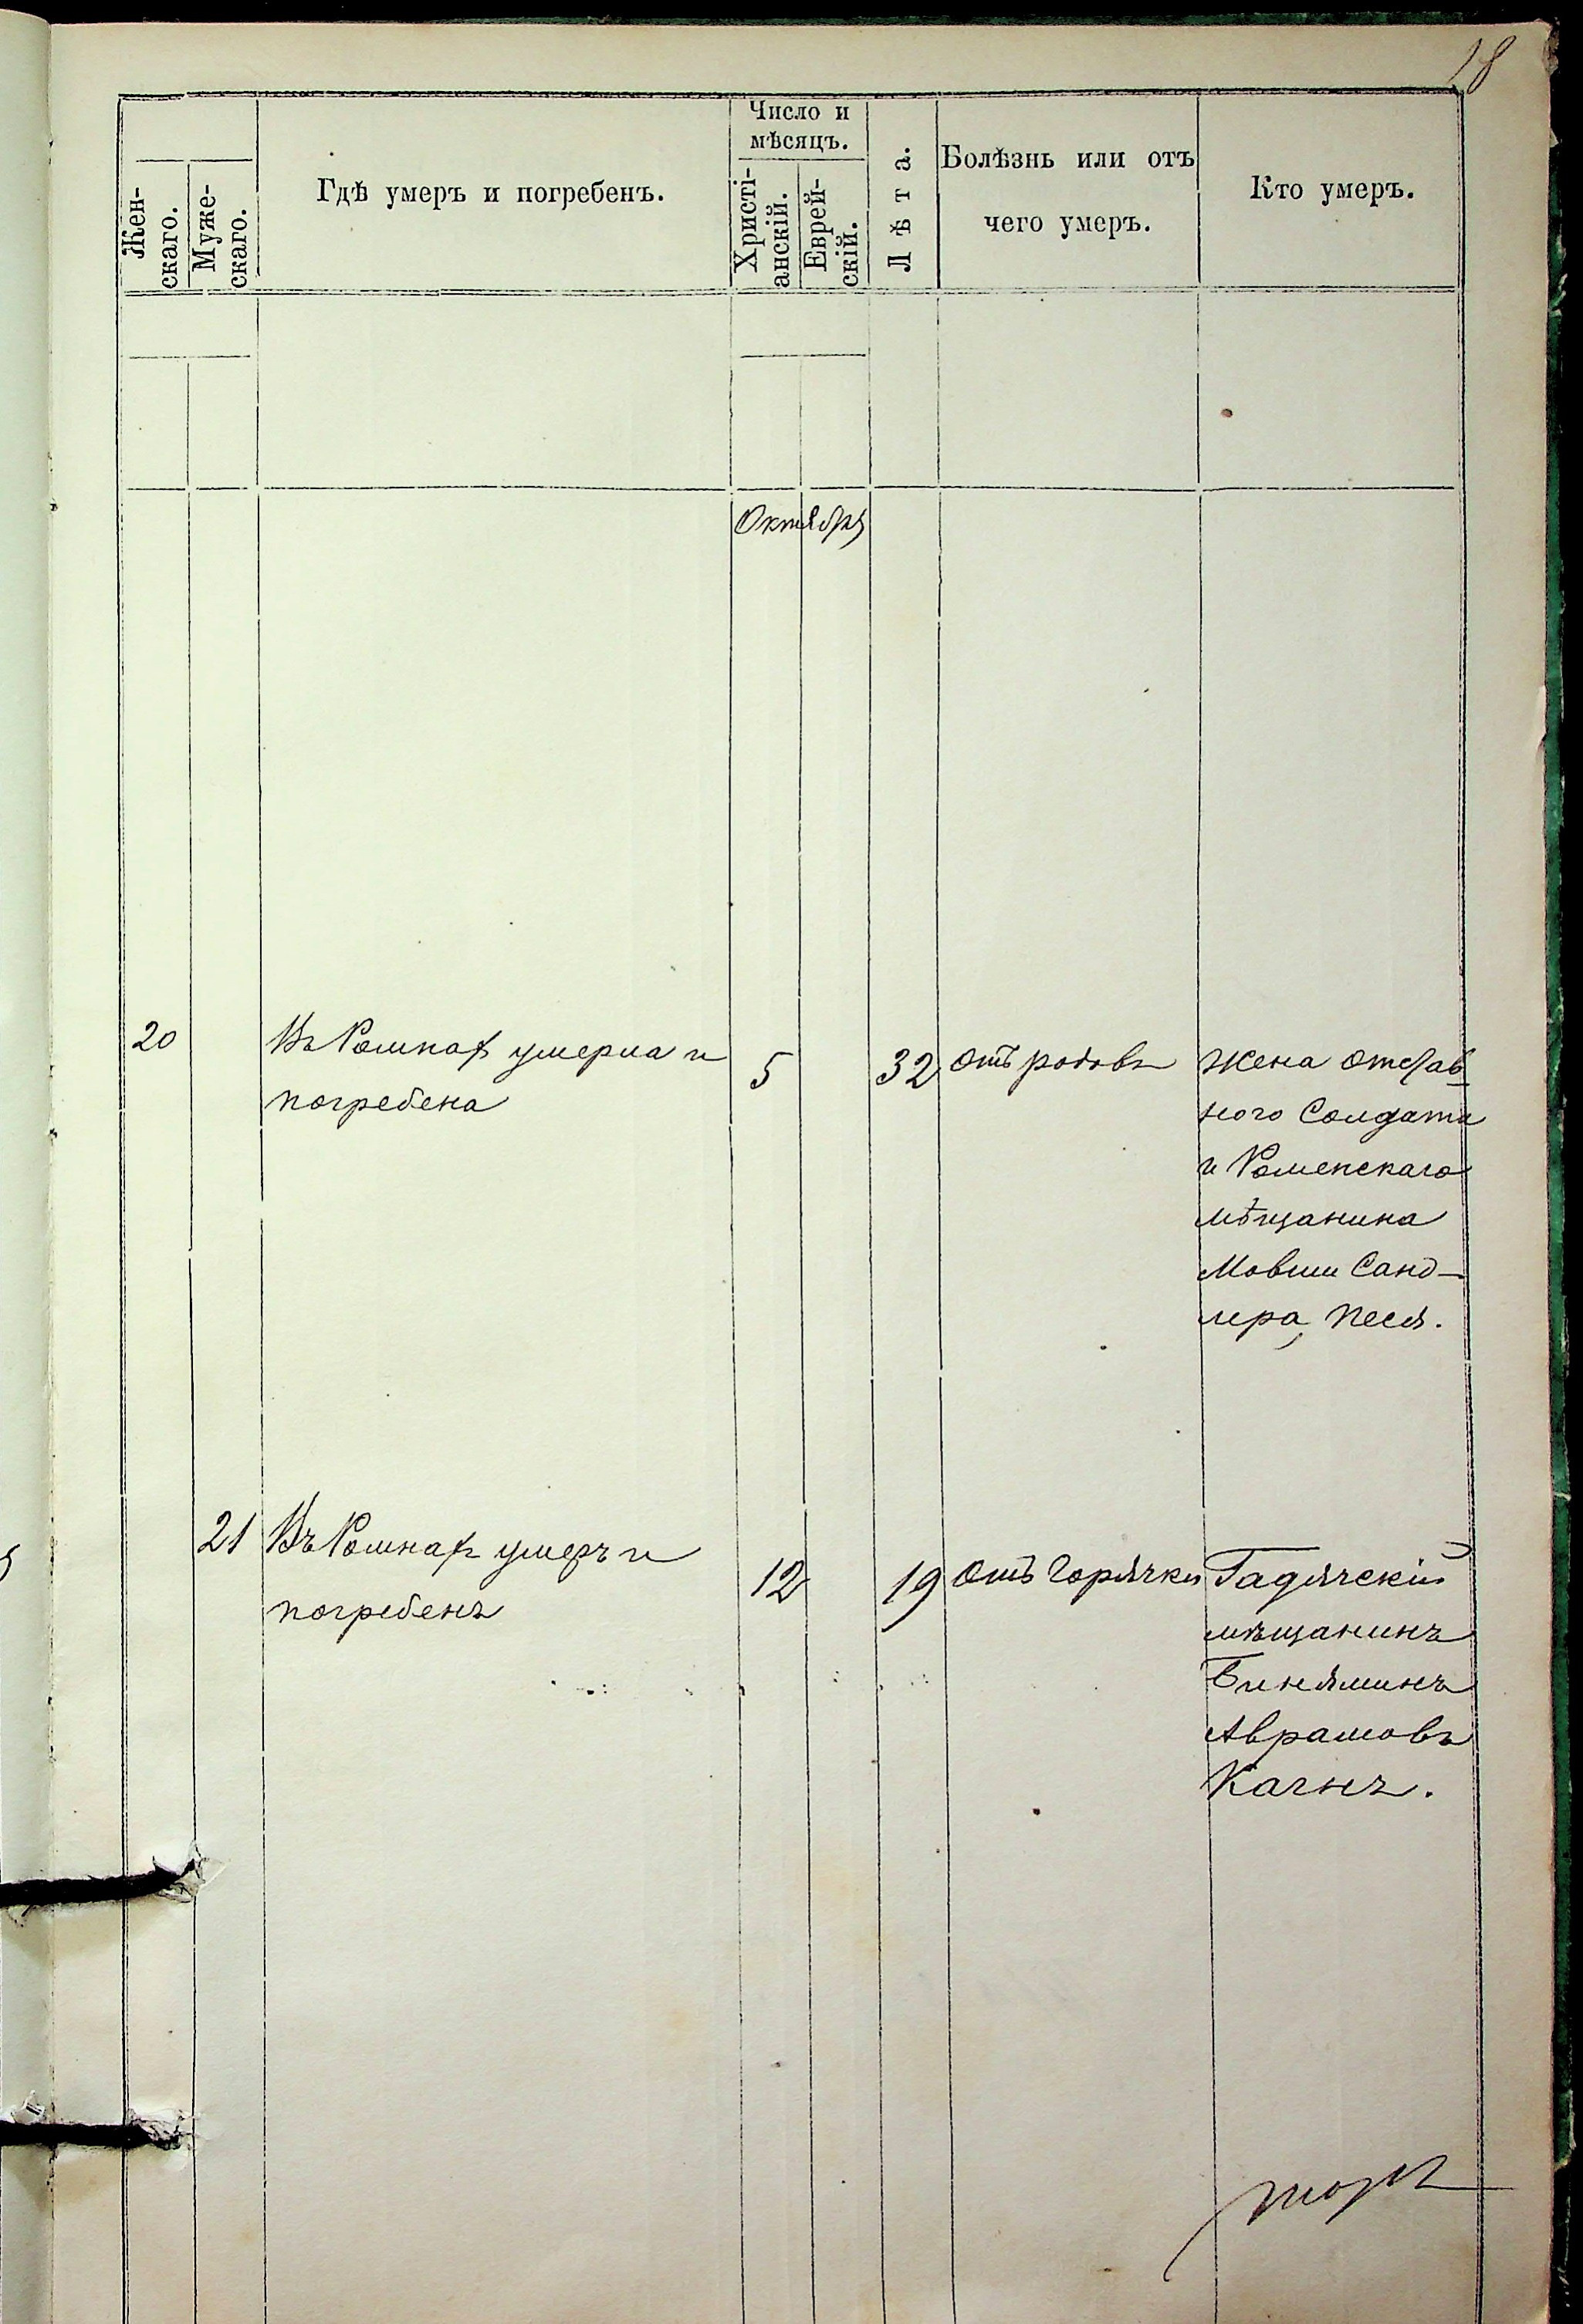 18
Жен-
скаго.
Муже-
скаго.
Гдѣ умеръ и погребенъ.
Число и
мѣсяцъ.
Христі-
анскій.
Еврей-
скій.
Лѣта.
Болѣзнь или отъ
чего умеръ.
Кто умеръ.
Октября
20
Въ Ромнах умерла и
погребена
5
32
отъ родовъ
Жена отстав
ного Солдата
и Роменскаго
мѣщанина
Мовши Санд-
лера, Песя.
21
Въ Ромнахъ умеръ и
погребенъ
12
19
отъ горячки
Гадячскій
мѣщанинъ
Бинямин​ъ
Аврамовъ
Каг​нъ.